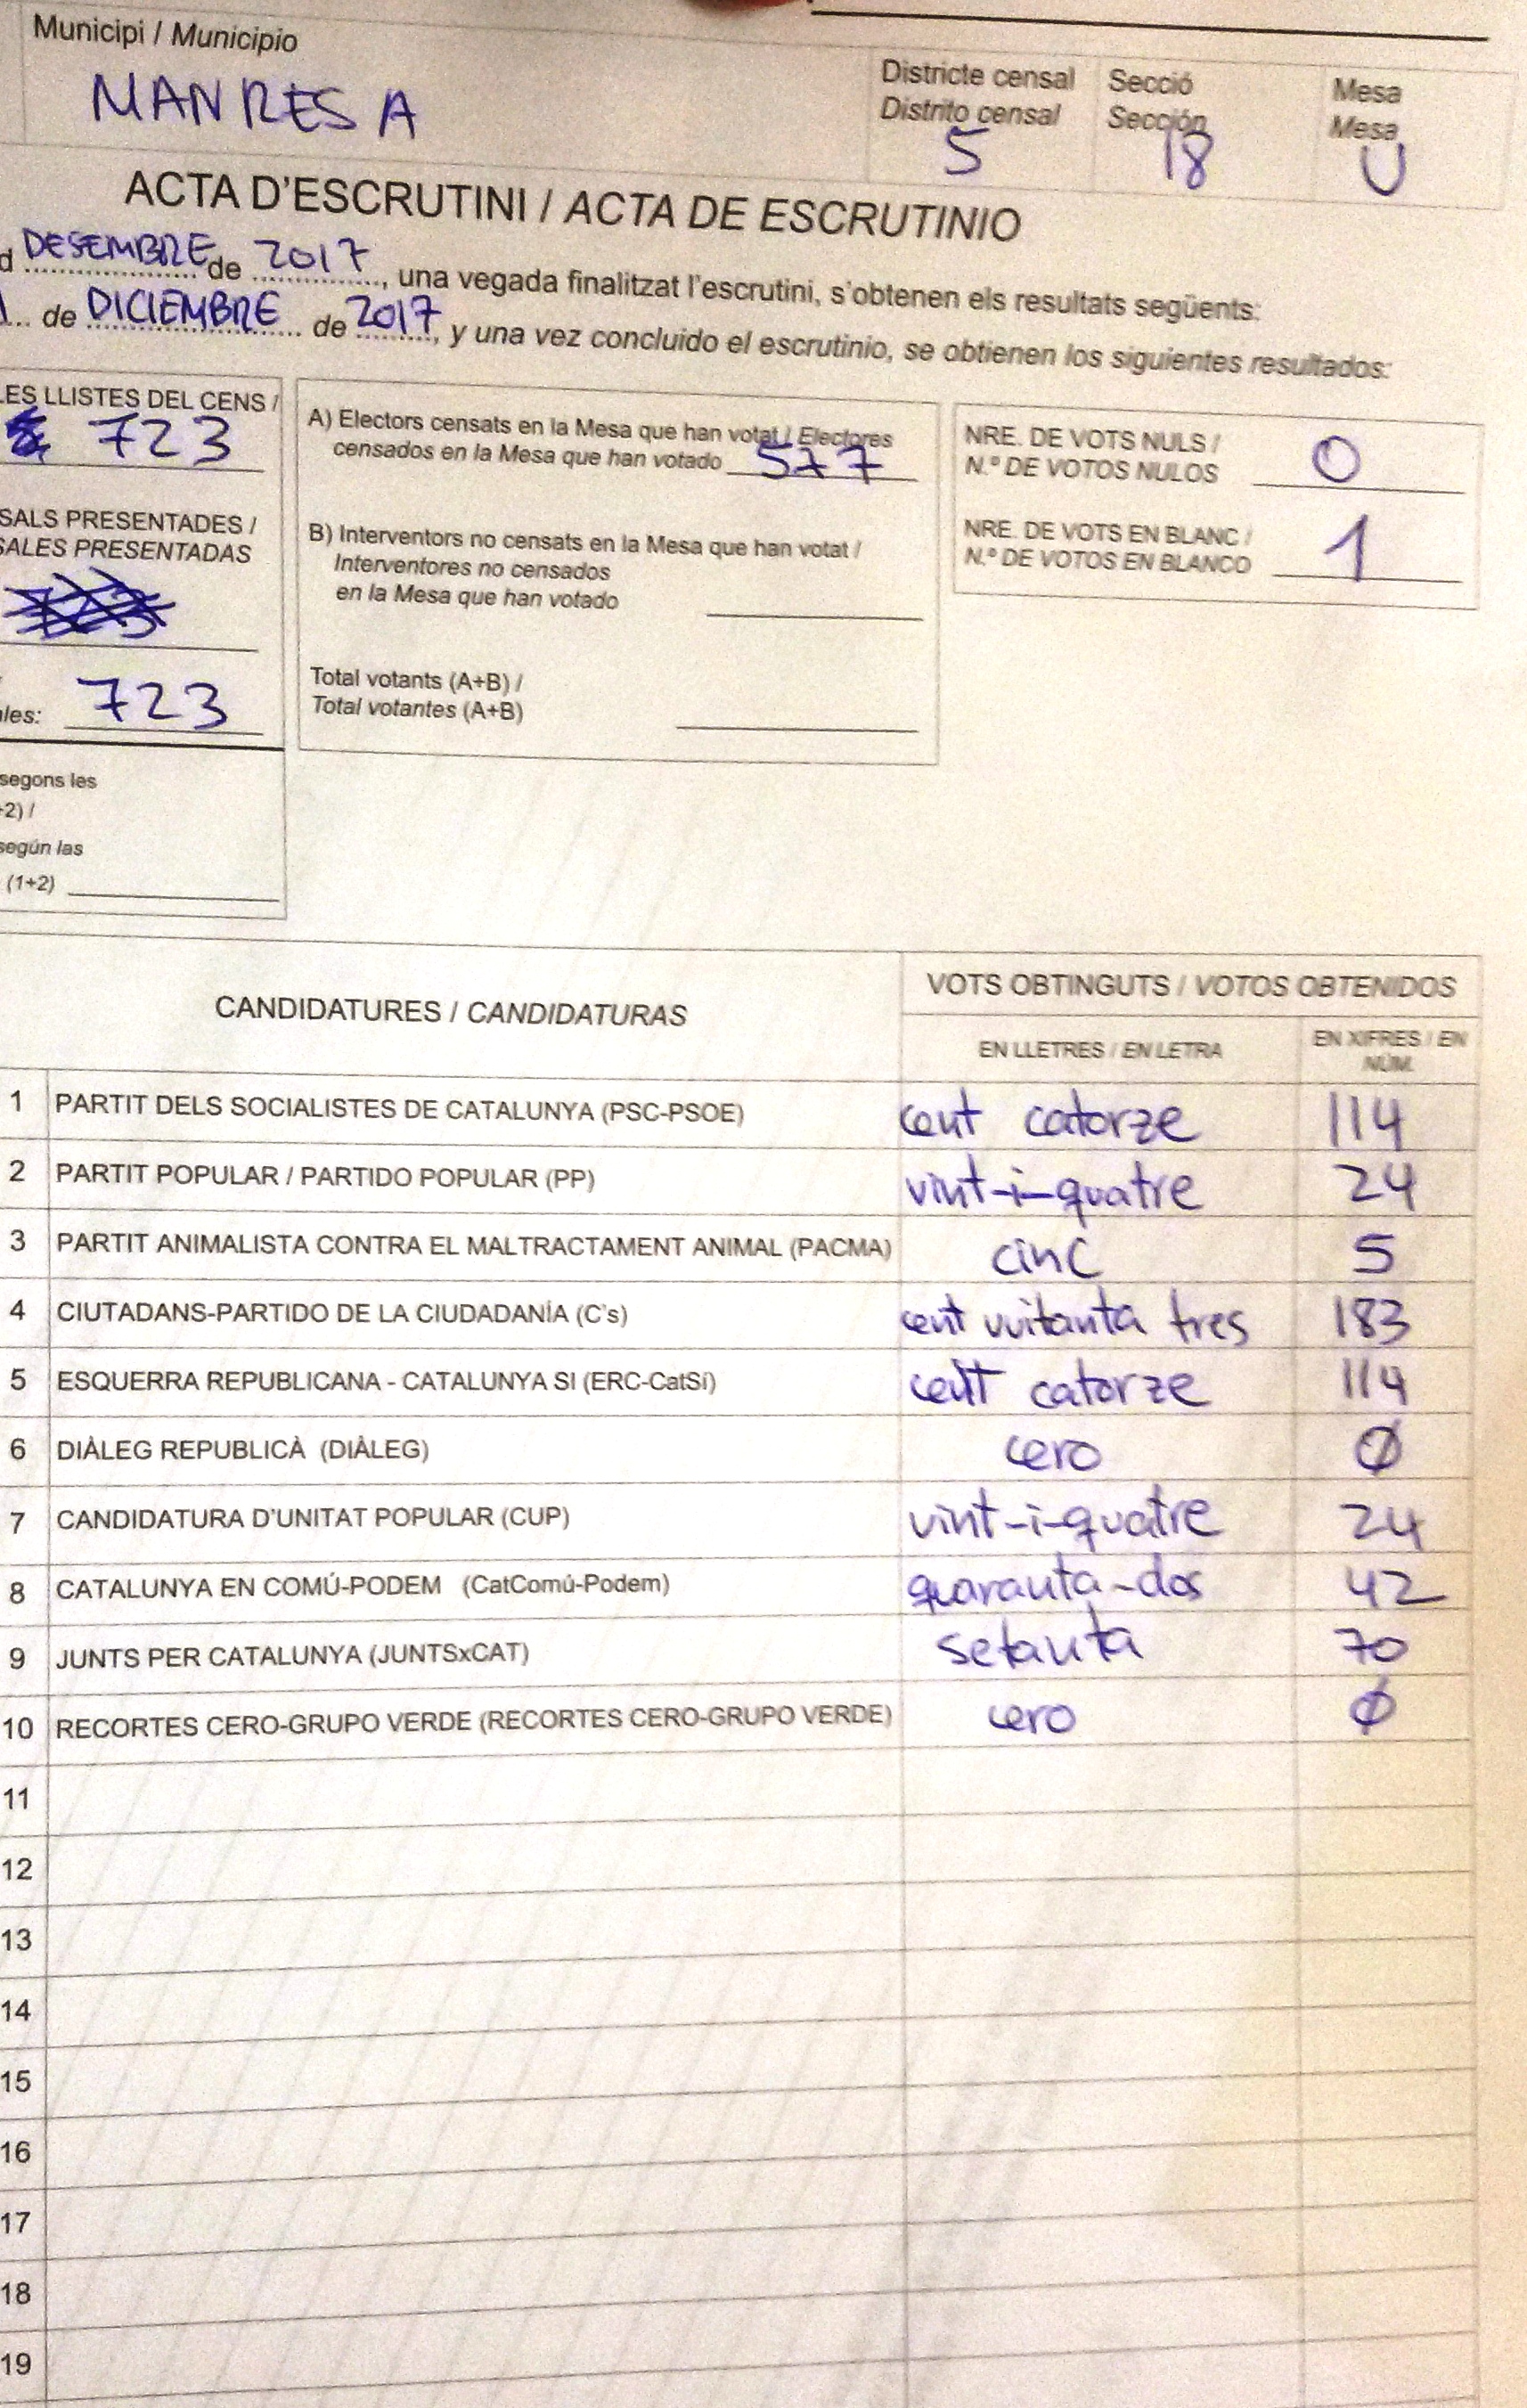 Municipi / Municipio
MANRESA
Districte censal
Distrito censal
5
Secció
Sección
18
Mesa
Mesa
U
ACTA D'ESCRUTINI / ACTA DE ESCRUTINIO
DESEMBRE de 2017, una vegada finalitzat l'escrutini, s'obtenen els resultats següents:
de DICIEMBRE de 2017, y una vez concluido el escrutinio, se obtienen los siguientes resultados:
LES LLISTES DEL CENS /
723
SALS PRESENTADES /
SALES PRESENTADAS
les: 723
segons les
+2) /
según las
(1+2)
A) Electors censats en la Mesa que han votat / Electores
censados en la Mesa que han votado 577
B) Interventors no censats en la Mesa que han votat /
Interventores no censados
en la Mesa que han votado
Total votants (A+B) /
Total votantes (A+B)
NRE. DE VOTS NULS /
N.º DE VOTOS NULOS 0
NRE. DE VOTS EN BLANC /
N.º DE VOTOS EN BLANCO 1
CANDIDATURES / CANDIDATURAS
VOTS OBTINGUTS / VOTOS OBTENIDOS
EN LLETRES / EN LETRA
EN XIFRES / EN
NÚM.
1 PARTIT DELS SOCIALISTES DE CATALUNYA (PSC-PSOE) cent catorze 114
2 PARTIT POPULAR / PARTIDO POPULAR (PP) vint-i-quatre 24
3 PARTIT ANIMALISTA CONTRA EL MALTRACTAMENT ANIMAL (PACMA) cinc 5
4 CIUTADANS-PARTIDO DE LA CIUDADANÍA (C's) cent vuitanta tres 183
5 ESQUERRA REPUBLICANA - CATALUNYA SI (ERC-CatSí) cent catorze 114
6 DIÀLEG REPUBLICÀ (DIÀLEG) cero Ø
7 CANDIDATURA D'UNITAT POPULAR (CUP) vint-i-quatre 24
8 CATALUNYA EN COMÚ-PODEM (CatComú-Podem) quaranta-dos 42
9 JUNTS PER CATALUNYA (JUNTSxCAT) setanta 70
10 RECORTES CERO-GRUPO VERDE (RECORTES CERO-GRUPO VERDE) cero Ø
11
12
13
14
15
16
17
18
19